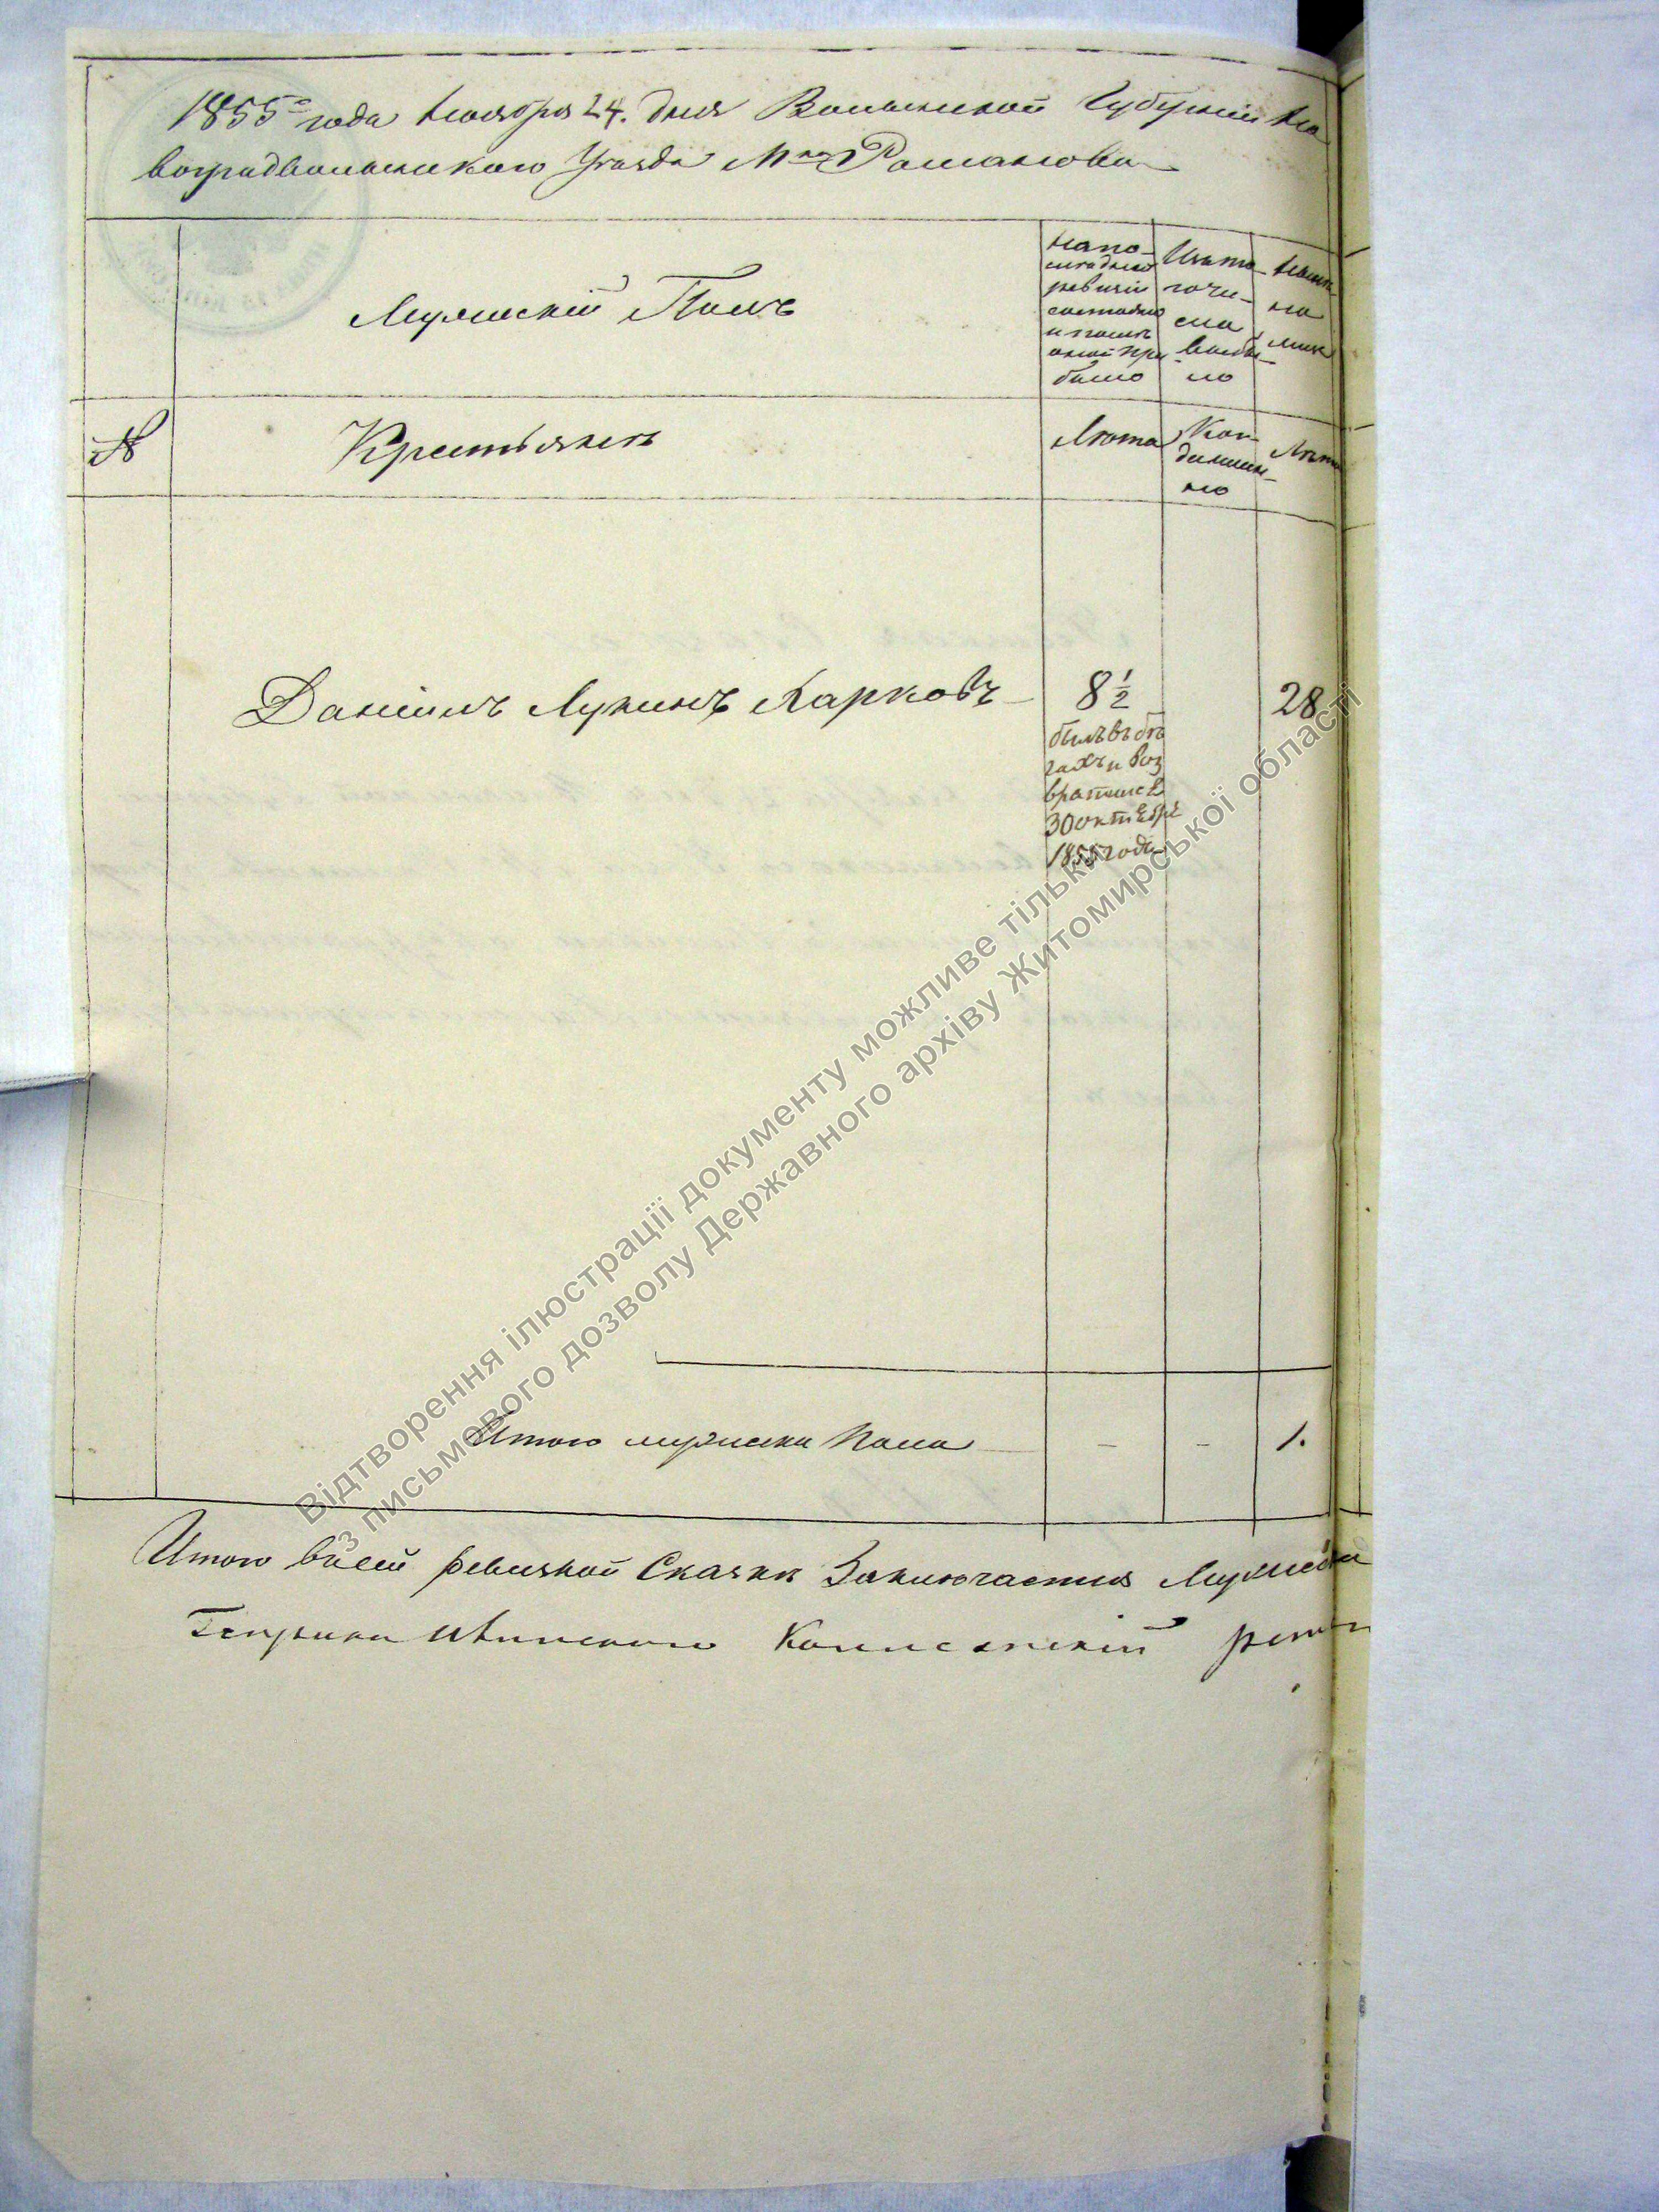 1855го года Ноября 24. дня Волынской Губернии Но
воградволынского Уезда М. Романова
Мужеский Полъ
Напо-
следнюю
ревизiю
состояло
и после
оной при
было
Изъ то
гочи-
сла
выбы-
ло
Ныне
на
лицо
№
Крестьянъ
Лета
Ког-
да имян-
но
Лета
Данiилъ Лукинъ Харковъ
8 1/2
28
былъ въ бе
гахъ и воз
вратился
30 октября
1855 года
Итого мужеска пола
-
-
1.
Итого в сей ревизкой Сказке Заключается Мужеска
Відтворення ілюстрації документу можливе тільки
з письмового дозволу Державного архіву Житомирської області